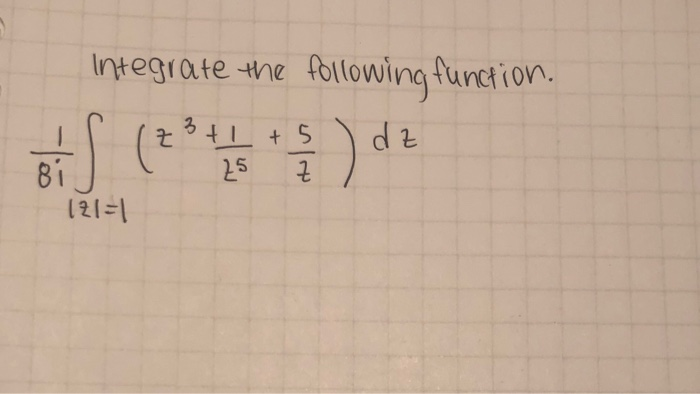 Integrate the following function.
1/8i ∫|z|=1 (z³ + 1/z⁵ + 5/z) dz